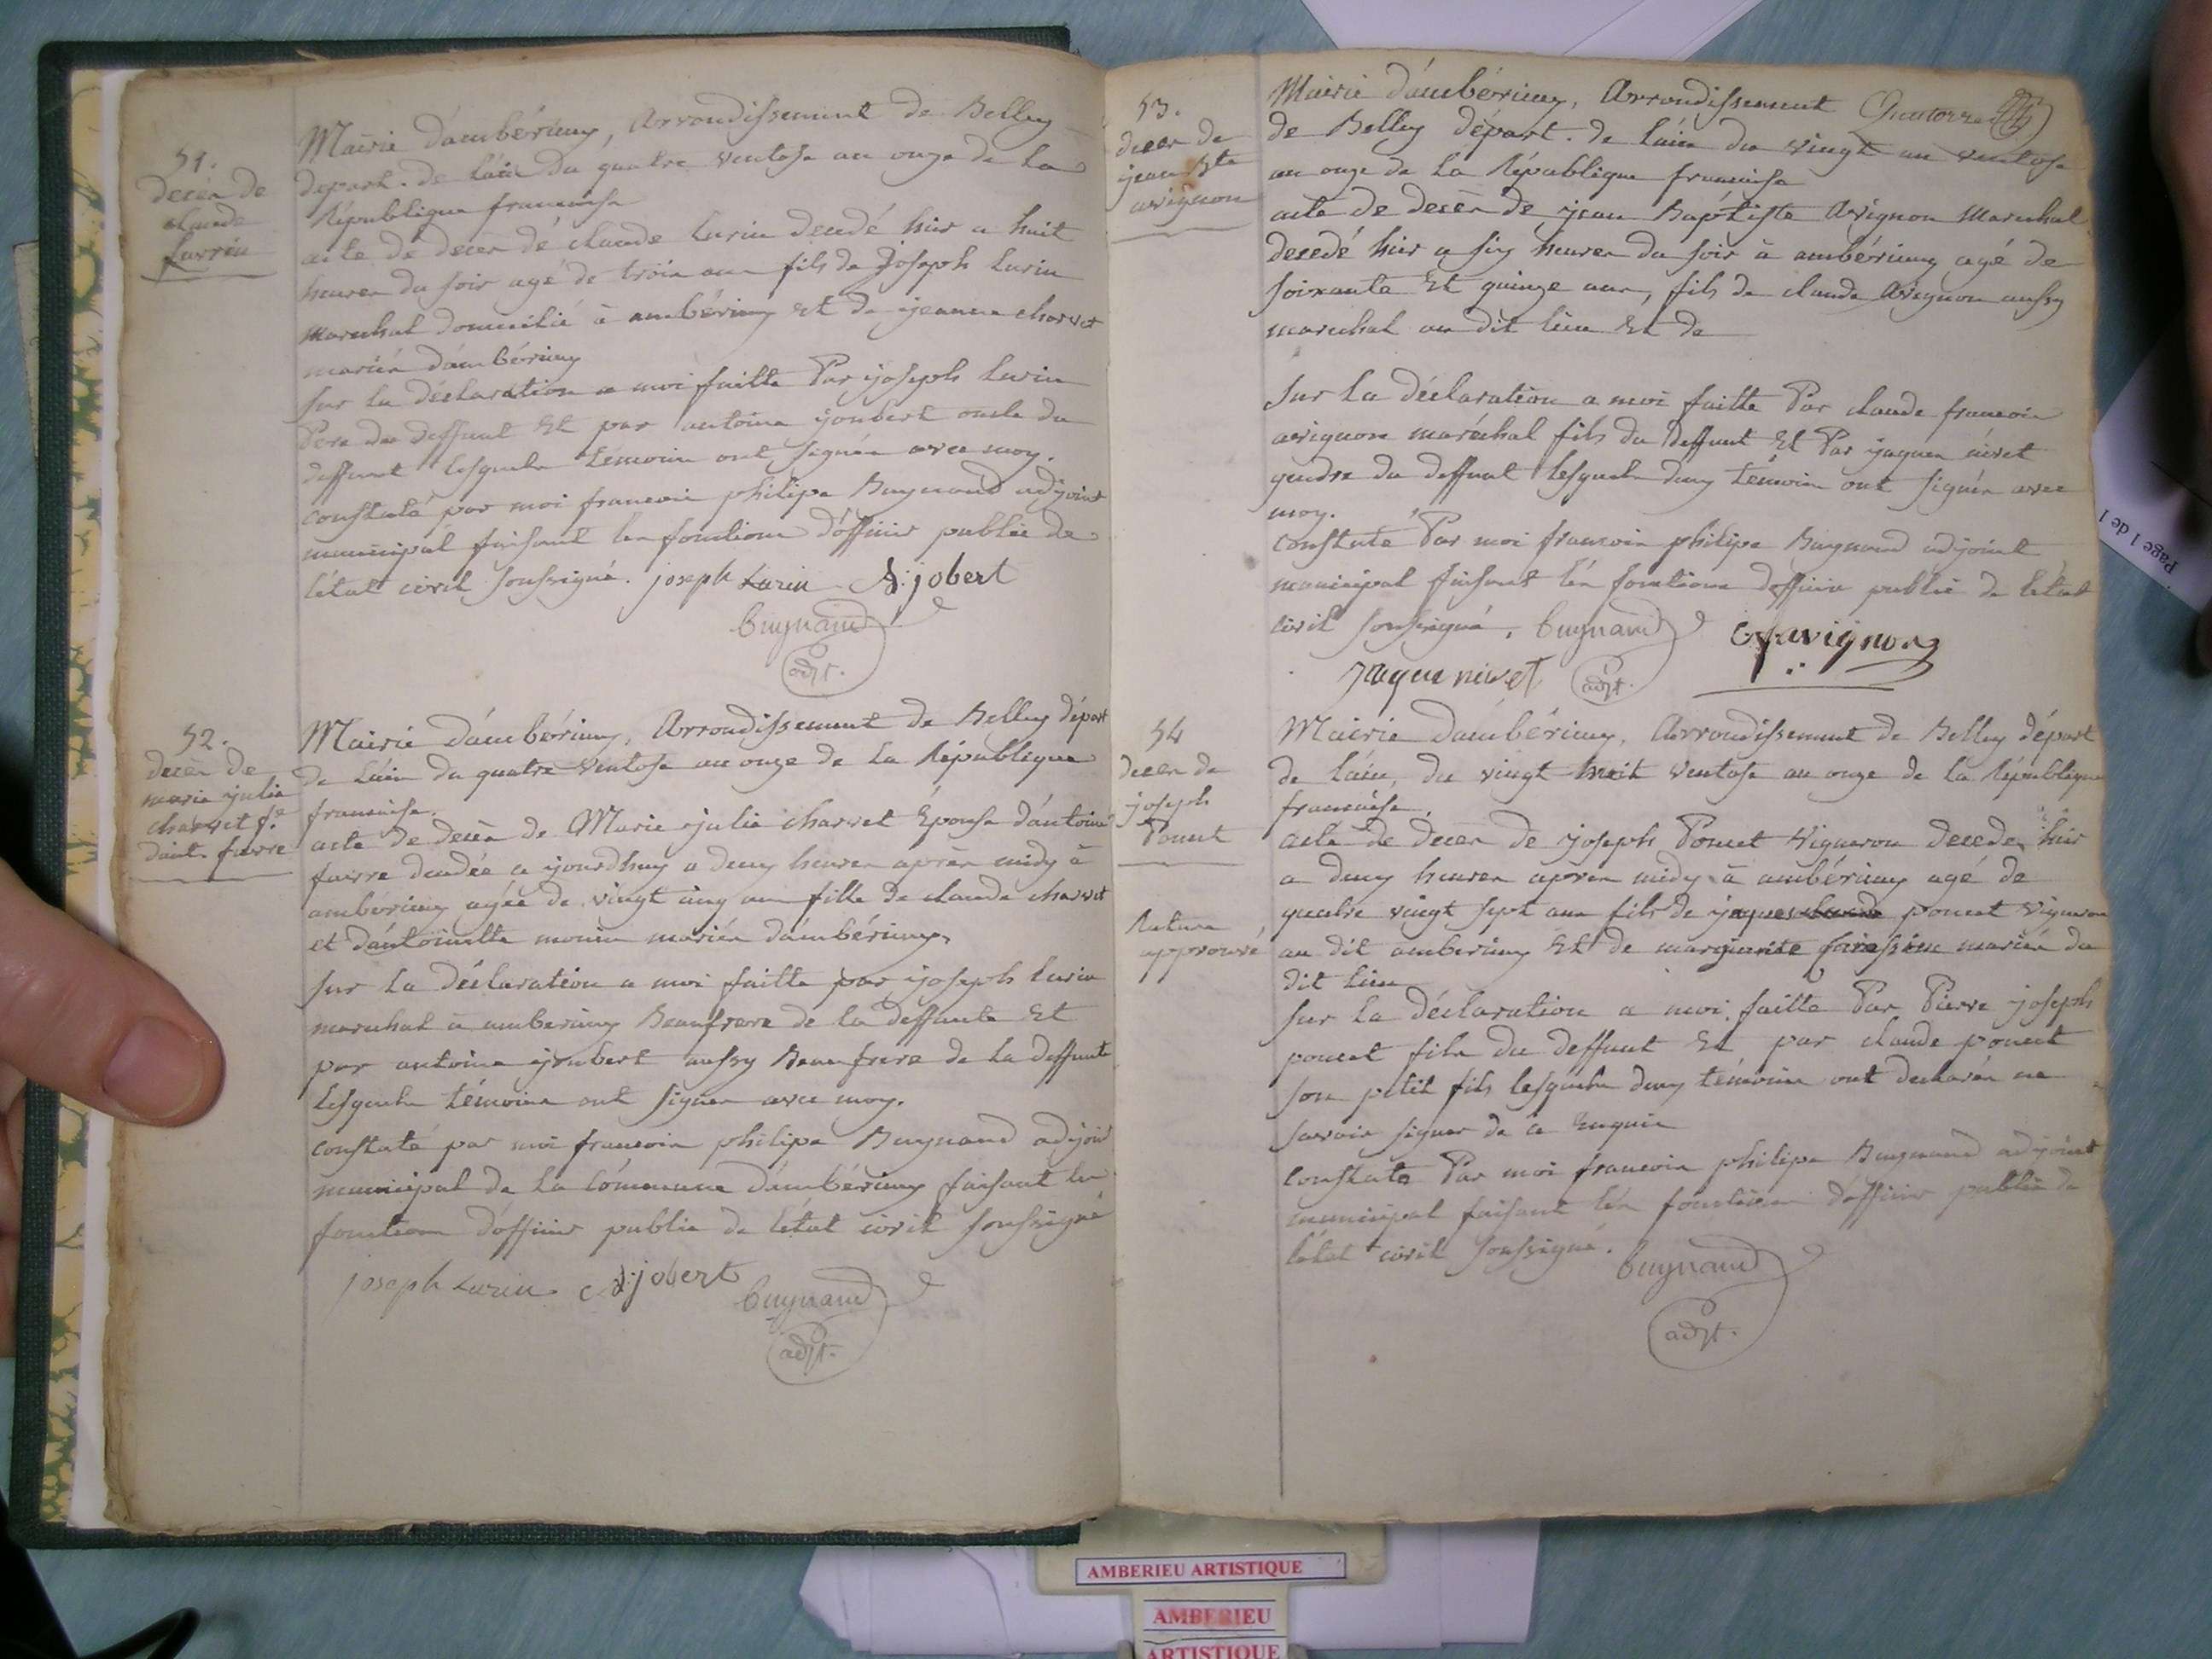 51.
decèr de
claude
Lurrin
Mairie d'ambérieux, Arrondissement de Belley
depart. de l'ain du quatre ventose an onze de la
République francaise
acte de decèr de claude Lurin decedé hier a huit
heurer du soir agé de troir anr fils de Joseph Lurin
marechal domicilié à ambérieux et de jeanne charvet
mariér d'ambérieux
sur la déclaration a moi faitte Par joseph Lurin
Pere du deffunt Et par antoine joubert oncle du
deffunt lesquelr témoinr ont signér avec moy.
constaté par moi francoir philipe Buynand adjoint
municipal faisant ler fonctionr d'officier public de
l'état civil soussigné. joseph Lurin A: jobert
buynand
adjt.
52.
decèr de
marie julie
charvet f.e
d'ant. favre
Mairie d'ambérieux, Arrondissement de Belley départ
de l'ain du quatre ventose an onze de la République
francaise.
acte de decèr de Marie julie charvet Épouse d'antoine
favre decedée a jourdhuy a deux heurer aprèr midy à
ambérieux agée de vingt cinq anr fille de claude charvet
et d'antoinette monin mariér d'ambérieux,
sur la déclaration a moi faitte par joseph Lurin
marechal à amberieux Beaufrere de la deffunte Et
par antoine joubert aussy Beaufrere de la deffunte
lesquelr témoinr ont signer avec moy.
constaté par moi francoir philipe Buynand adjoint
municipal de la cómmune d'ambérieux faisant ler
fonctionr d'officier public de l'état civil soussigné
joseph Lurin A: jobert buynand
adjt.
Quatorze
53.
decer de
jean Bte
avignon
Mairie d'ambérieux, Arrondissement
de Belley départ. de l'ain du vingt un ventose
an onze de la République francaise
acte de decèr de jean Baptiste Avignon marechal
decedé hier a six heurer du soir à ambérieux agé de
soixante Et quinze anr, fils de claude Avignon aussy
marechal au dit lieu Et de
sur la déclaration a moi faitte Par claude francoir
avignon maréchal fils du deffunt Et Par jaquer nivet
gendre du deffunt lesquelr deux témoinr ont signér avec
moy.
constaté Par moi francoir philipe Buynand adjoint
municipal faisant lér fonctionr d'officier public de l'etat
civil soussigné. buynand Cfavignon
Jaque nivet adjt.
54
decer de
joseph
Poncet
Rature
approuvé
Mairie d'ambérieux, Arrondissement de Belley départ
de l'ain, du vingt huit ventose an onze de la République
francaise.
acte de decer de joseph Poncet vigneron decede hier
a deux heurer aprer midy à ambérieux agé de
quatre vingt sept anr fils de jaques poncet vigneron
au dit amberieux Et de marguerite mariér du
dit lieu
sur la déclaration a moi faitte Par Pierre joseph
poncet filr du deffunt Et par claude poncet
son petit fils lesquelr deux témoinr ont declarér ne
savoir signer de ce Enquir
constaté Par moi francoir philipe Buynand adjoint
municipal faisant lér fonctionr d'officier public de
l'état civil soussigné.
buynand
adjt.
Page 1 de 1
AMBERIEU ARTISTIQUE
AMBERIEU
ARTISTIQUE